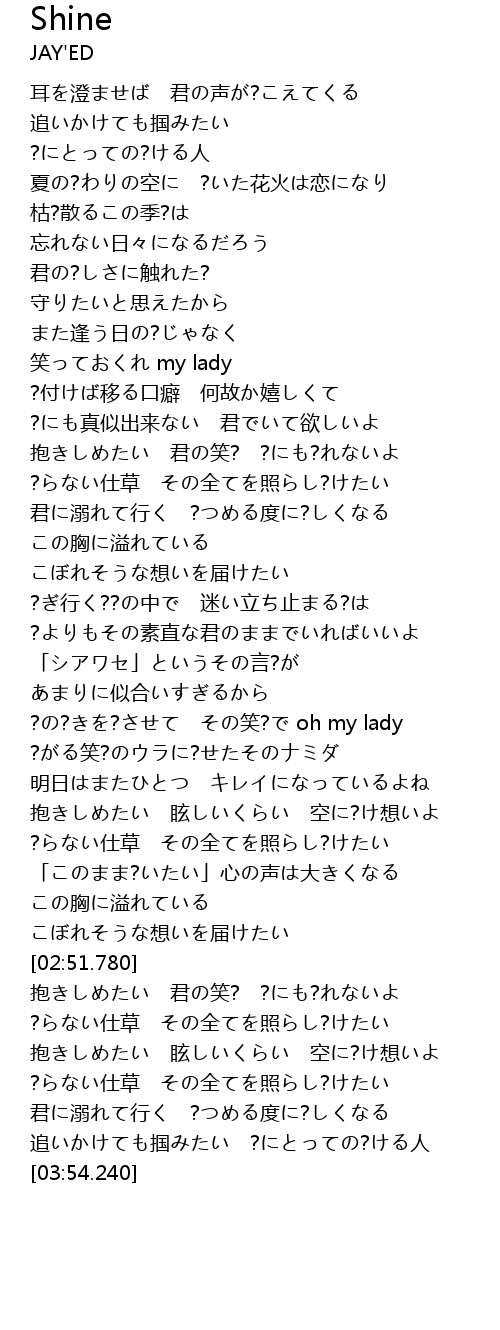 Shine
JAY'ED
耳を澄ませば　君の声が?こえてくる
追いかけても掴みたい
?にとっての?ける人
夏の?わりの空に　?いた花火は恋になり
枯?散るこの季?は
忘れない日々になるだろう
君の?しさに触れた?
守りたいと思えたから
また逢う日の?じゃなく
笑っておくれ my lady
?付けば移る口癖　何故か嬉しくて
?にも真似出来ない　君でいて欲しいよ
抱きしめたい　君の笑?　?にも?れないよ
?らない仕草　その全てを照らし?けたい
君に溺れて行く　?つめる度に?しくなる
この胸に溢れている
こぼれそうな想いを届けたい
?ぎ行く??の中で　迷い立ち止まる?は
?よりもその素直な君のままでいればいいよ
「シアワセ」というその言?が
あまりに似合いすぎるから
?の?きを?させて　その笑?で oh my lady
?がる笑?のウラに?せたそのナミダ
明日はまたひとつ　キレイになっているよね
抱きしめたい　眩しいくらい　空に?け想いよ
?らない仕草　その全てを照らし?けたい
「このまま?いたい」心の声は大きくなる
この胸に溢れている
こぼれそうな想いを届けたい
[02:51.780]
抱きしめたい　君の笑?　?にも?れないよ
?らない仕草　その全てを照らし?けたい
抱きしめたい　眩しいくらい　空に?け想いよ
?らない仕草　その全てを照らし?けたい
君に溺れて行く　?つめる度に?しくなる
追いかけても掴みたい　?にとっての?ける人
[03:54.240]